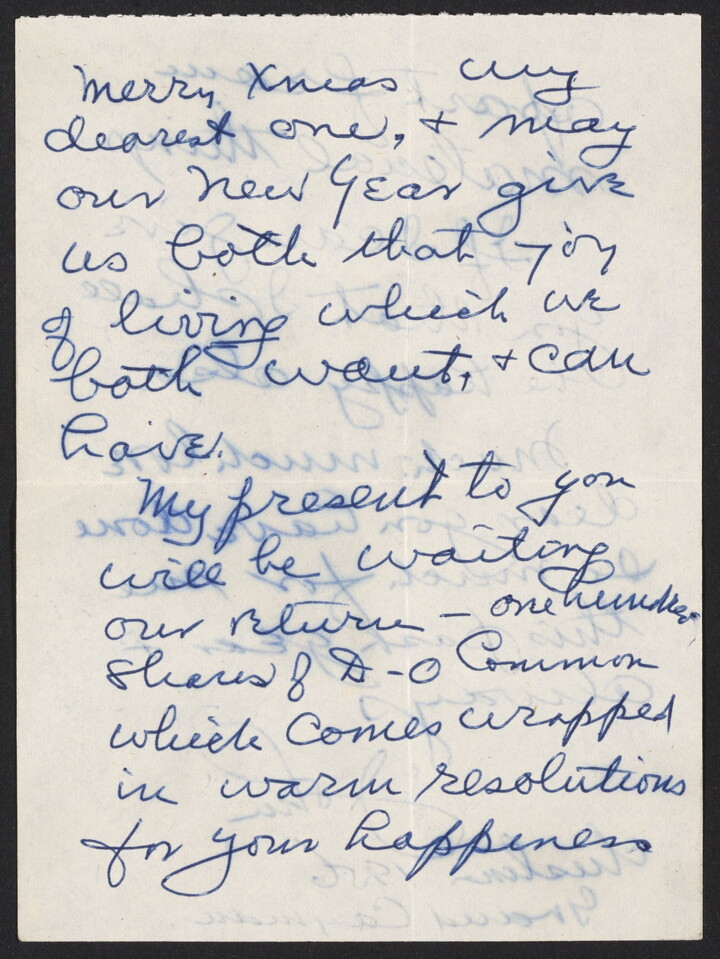 Merry Xmas my
dearest one, + may
our New Year give
us both that joy
of living which we
both want, + can
have.
My present to you
will be waiting
our return – one hundred
shares of D-O Common
which comes wrapped
in warm resolutions
for your happiness